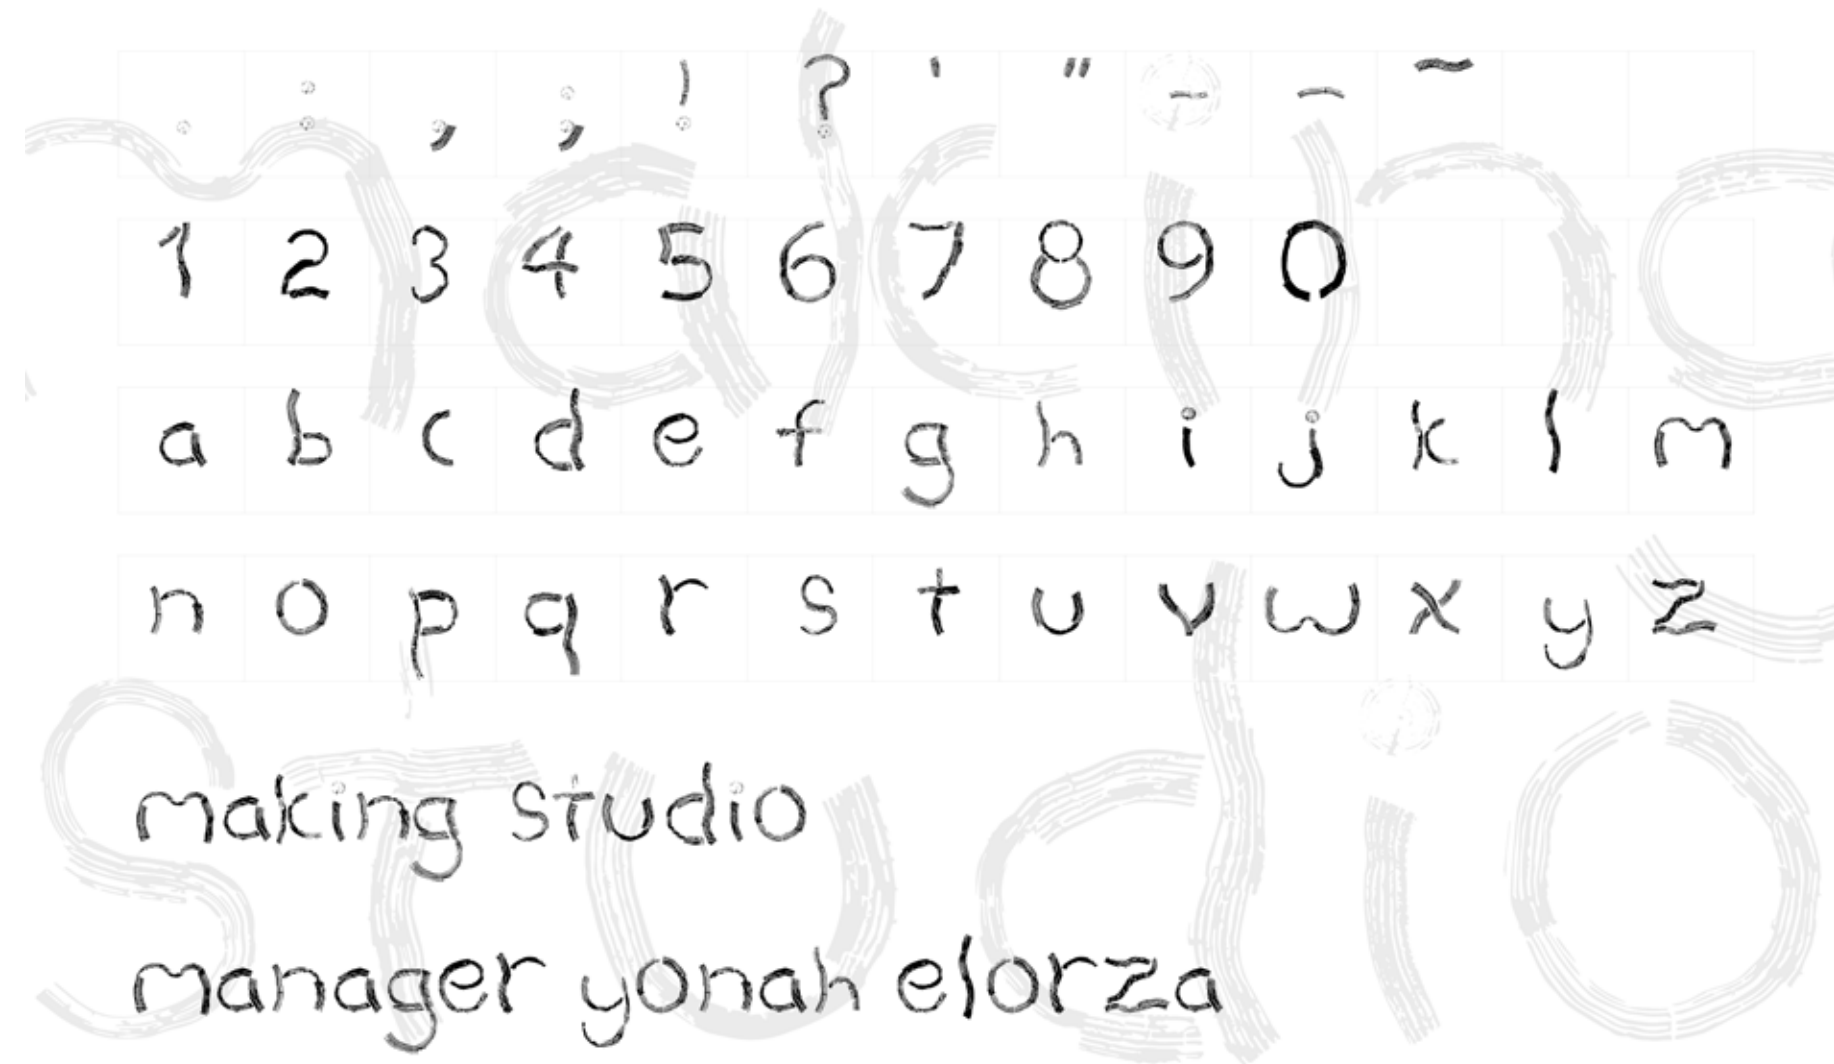 . : , ; ! ? ' " - – ~
1 2 3 4 5 6 7 8 9 0
a b c d e f g h i j k l m
n o p q r s t u v w x y z
making studio
manager yonah elorza